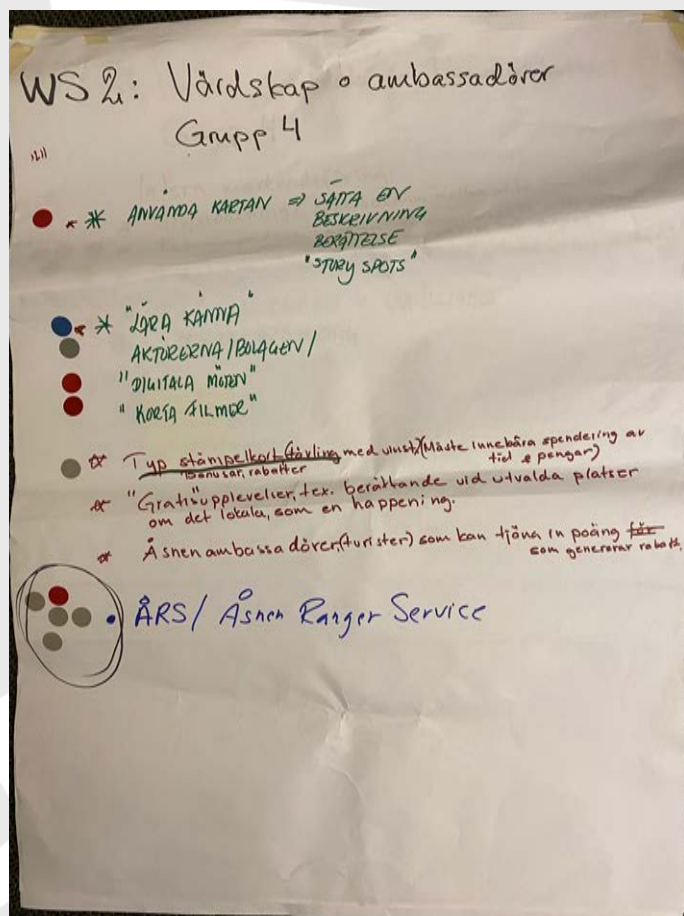 WS 2: Värdskap o ambassadörer
Grupp 4
* ANVÄNDA KARTAN ⇒ SÄTTA EN
BESKRIVNING
BERÄTTELSE
"STORY SPOTS"
* "LÄRA KÄNNA"
AKTÖRERNA/BOLAGEN/
"DIGITALA MÖTEN"
"KORTA FILMER"
Typ stämpelkort (tävling med vinst) (Måste innebära spendering av
tid & pengar)
Bonusar, rabatter
"Gratis"upplevelser, tex. berättande vid utvalda platser
om det lokala, som en happening.
Åsnen ambassadörer (turister) som kan tjäna in poäng för
som genererar rabatt.
• ÅRS/ Åsnen Ranger Service